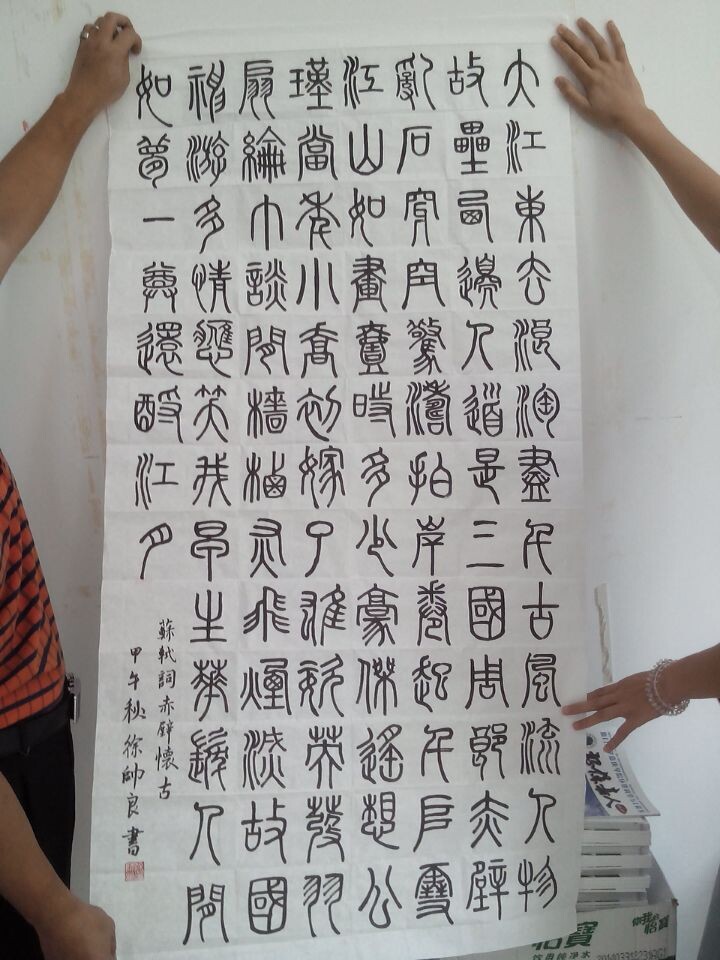 大江東去浪淘盡千古風流人物
故壘西邊人道是三國周郎赤壁
亂石穿空驚濤拍岸卷起千堆雪
江山如畫壹時多少豪傑遙想公
瑾當年小喬初嫁了雄姿英發羽
扇綸巾談間檣櫓灰飛煙滅故國
神游多情應笑我早生華髮人間
如夢一尊還酹江月
蘇軾詞赤壁懷古
甲午秋徐帥良書
怡寶